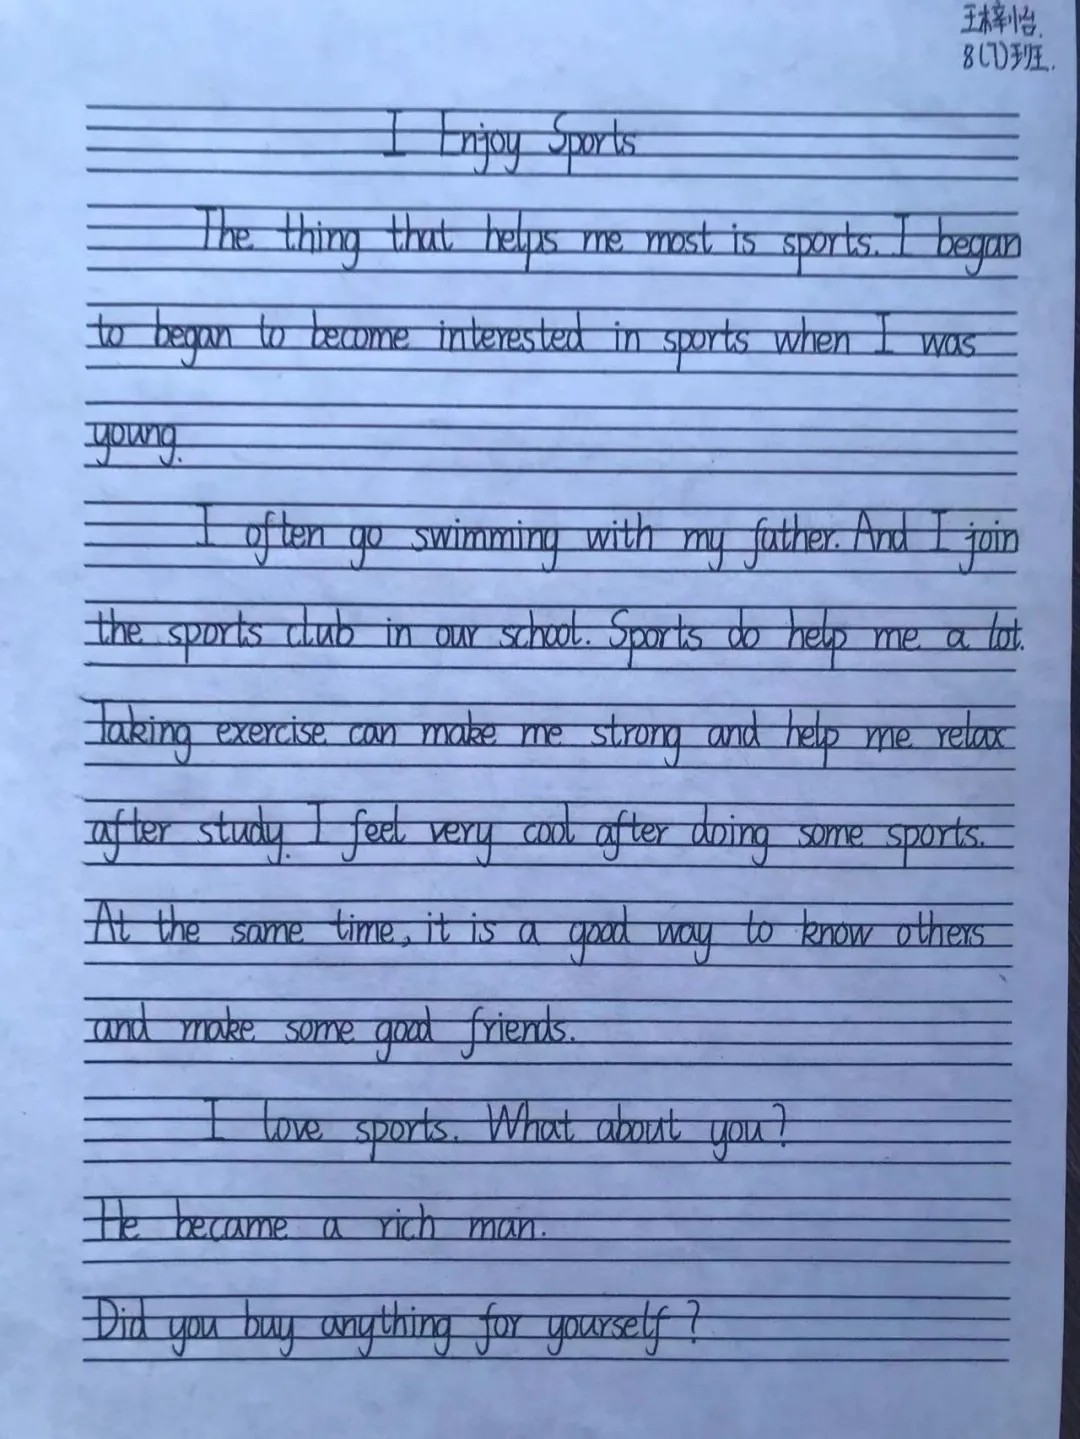 王梓怡.
8(7)班.
I Enjoy Sports
The thing that helps me most is sports. I began
to began to become interested in sports when I was
young.
I often go swimming with my father. And I join
the sports club in our school. Sports do help me a lot.
Taking exercise can make me strong and help me relax
after study. I feel very cool after doing some sports.
At the same time, it is a good way to know others
and make some good friends.
I love sports. What about you?
He became a rich man.
Did you buy anything for yourself?